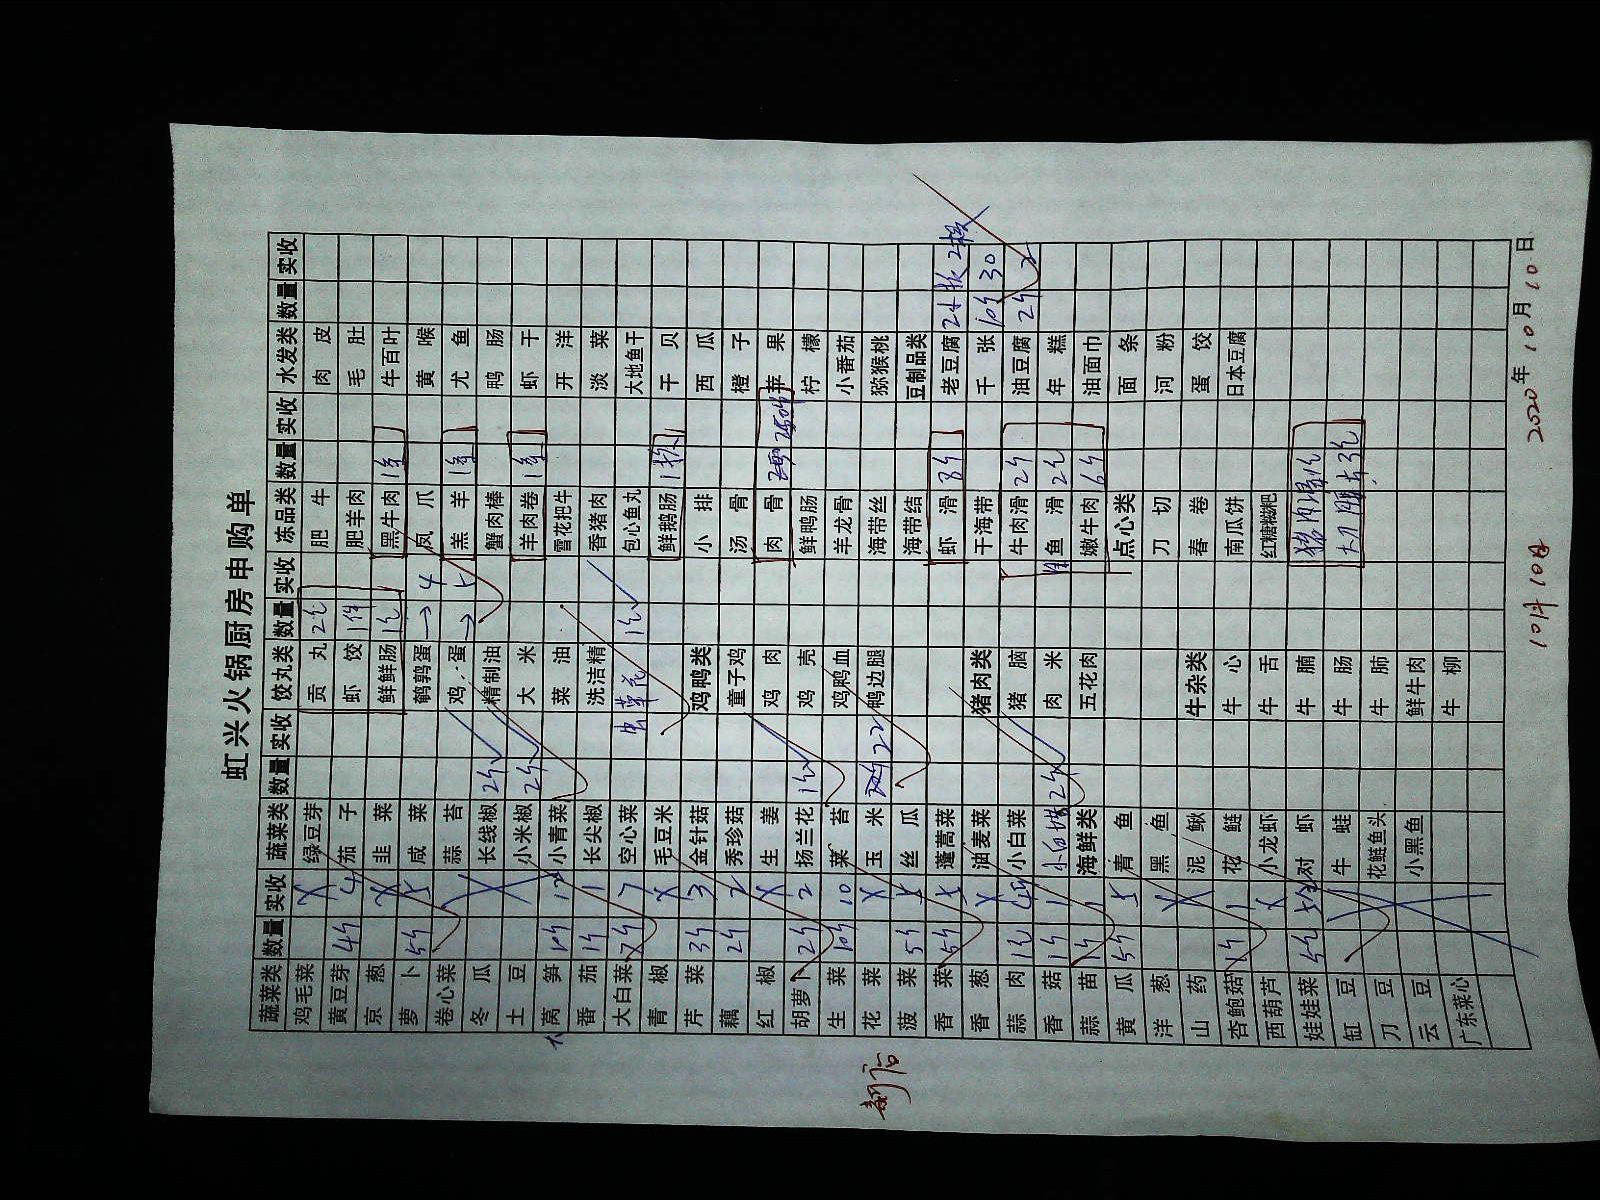 虹兴火锅厨房申购单
蔬菜类 数量 实收 蔬菜类 数量 实收 饺丸类 数量 实收 冻品类 数量 实收 水发类 数量 实收
鸡毛菜 X 绿豆芽 贡丸 2包 肥牛 肉皮
黄豆芽 4斤 4 茄子 虾饺 1件 肥羊肉 毛肚
京葱 X 韭菜 鲜鲜肠 1包 黑牛肉 1条 牛百叶
萝卜 5斤 5 咸菜 鹌鹑蛋 → 4 凤爪 黄喉
卷心菜 蒜苔 鸡蛋 → 羔羊 1条 尤鱼
冬瓜 X 长线椒 2斤 精制油 蟹肉棒 鸭肠
土豆 小米椒 2斤 大米 羊肉卷 1条 虾干
莴笋 小青菜 菜油 雪花把牛 开洋
番茄 1斤 1 长尖椒 洗洁精 香猪肉 淡菜
大白菜 7斤 7 空心菜 虫草花 1包 包心鱼丸 大地鱼干
青椒 X 毛豆米 鲜鹅肠 1板 干贝
芹菜 3斤 3 金针菇 鸡鸭类 小排 西瓜
藕 2斤 2 秀珍菇 童子鸡 汤骨 橙子
红椒 X 生姜 鸡肉 肉骨 苹果
胡萝卜 2斤 2 扬兰花 1斤 鸡壳 鲜鸭肠 柠檬
生菜 10斤 10 菜苔 鸡鸭血 羊龙骨 小番茄
花菜 X 玉米 22 鸭边腿 海带丝 猕猴桃
菠菜 5斤 5 丝瓜 海带结 豆制品类
香菜 5斤 5 蓬蒿菜 虾滑 8斤 老豆腐 2大板 2板
香葱 X 油麦菜 猪肉类 干海带 千张 10斤 30
蒜肉 1包 小白菜 猪脑 牛肉滑 2斤 油豆腐 2斤 2
香菇 1斤 1 2斤 肉米 鱼滑 2包 年糕
蒜苗 1斤 1 海鲜类 五花肉 嫩牛肉 6斤 油面巾
黄瓜 5斤 5 青鱼 点心类 面条
洋葱 黑鱼 刀切 河粉
山药 X 泥鳅 牛杂类 春卷 蛋饺
杏鲍菇 1斤 1 花鲢 牛心 南瓜饼 日本豆腐
西葫芦 X 小龙虾 牛舌 红糖糍粑
娃娃菜 5包 对虾 牛腩
缸豆 牛蛙 牛肠
刀豆 花鲢鱼头 牛肺
云豆 小黑鱼 鲜牛肉
广东菜心 牛柳
2020年10月10日